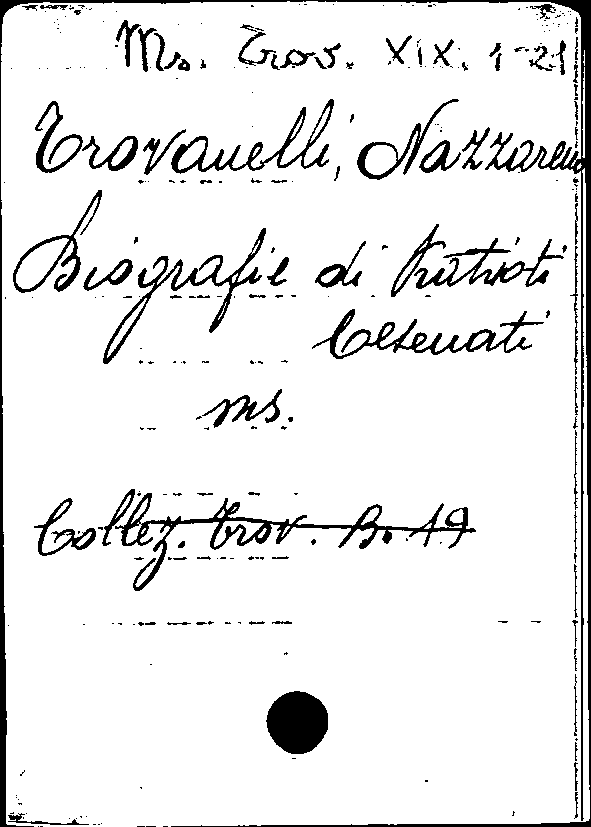 Ms. Trov. XIX. 1-21
Trovanelli, Nazzareno
Biografie di Patrioti
Cesenati
ms.
Collez. Trov. B. 19